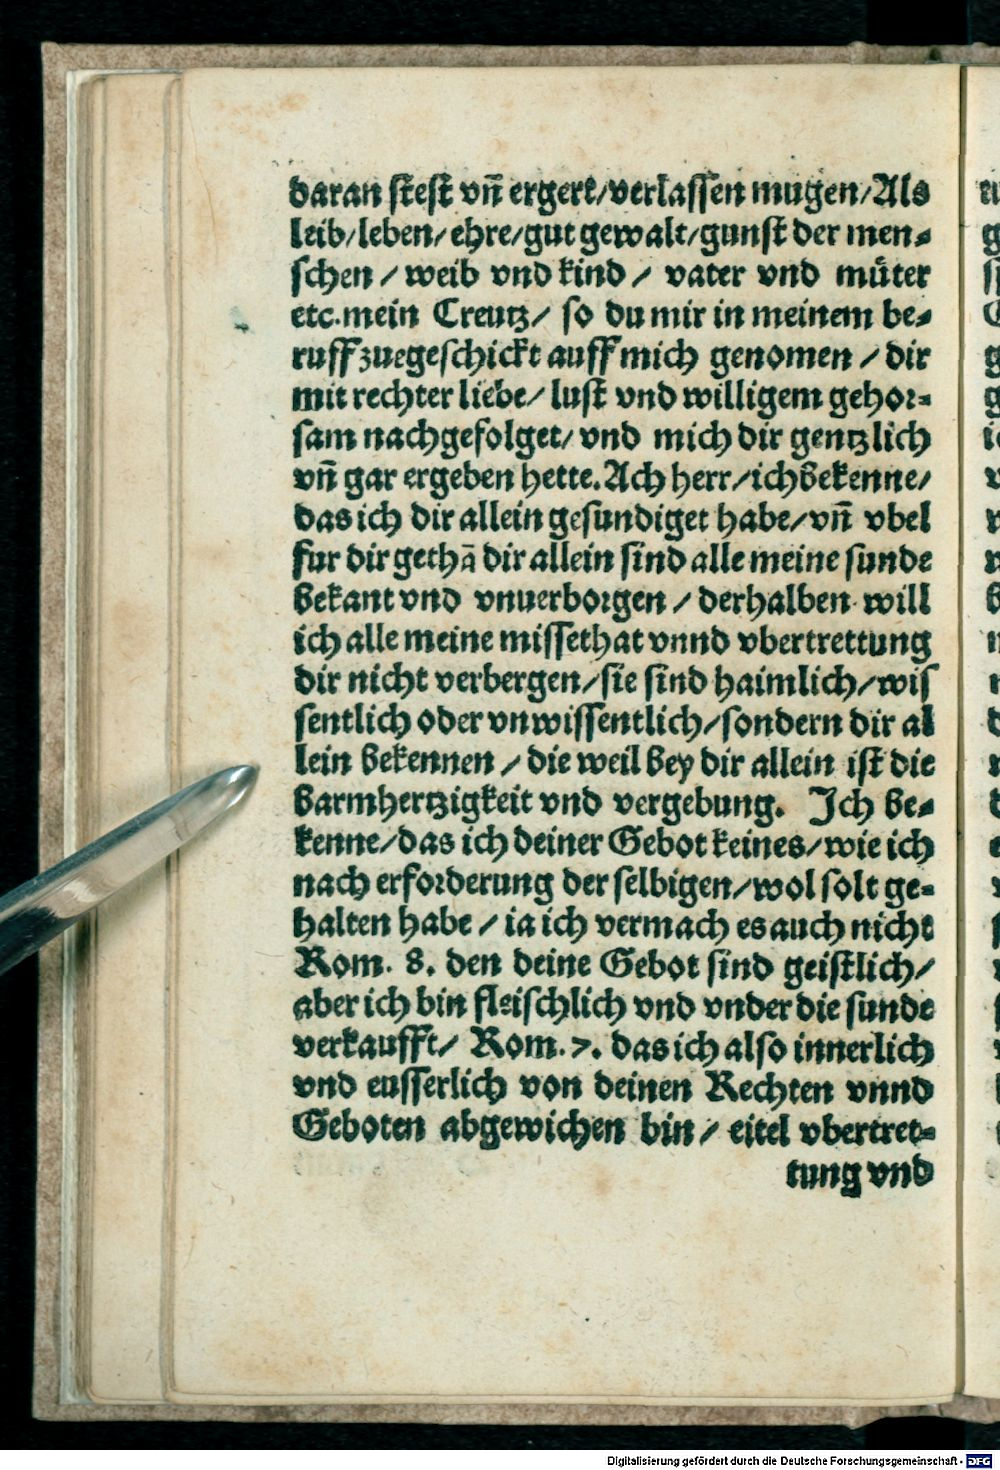 daran stest vñ ergert/verlassen mugen/Als
leib/leben/ehre/gut gewalt/gunst der men-
schen/weib vnd kind/ vater vnd můter
etc.mein Creutz/ so du mir in meinem be-
ruff zuegeschickt auff mich genomen/dir
mit rechter liebe/lust vnd willigem gehor-
sam nachgefolget/vnd mich dir gentzlich
vñ gar ergeben hette. Ach herr/ich bekenne/
das ich dir allein gesundiget habe/vñ vbel
fur dir gethã dir allein sind alle meine sunde
bekant vnd vnuerborgen/derhalben will
ich alle meine missethat vnnd vbertrettung
dir nicht verbergen/sie sind haimlich/wis
sentlich oder vnwissentlich/sondern dir al
lein bekennen/die weil bey dir allein ist die
barmhertzigkeit vnd vergebung. Ich be-
kenne/das ich deiner Gebot keines/wie ich
nach erforderung der selbigen/wol solt ge-
halten habe/ia ich vermach es auch nicht
Rom. 8. den deine Gebot sind geistlich/
aber ich bin fleischlich vnd vnder die sunde
verkaufft/ Rom.7. das ich also innerlich
vnd eusserlich von deinen Rechten vnnd
Geboten abgewichen bin/eitel vbertret-
tung vnd
Digitalisierung gefördert durch die Deutsche Forschungsgemeinschaft - DFG